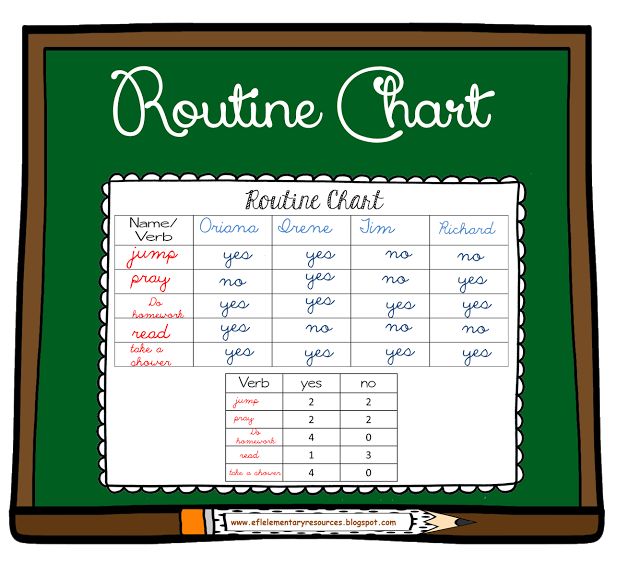 Routine Chart
Routine Chart
Name/ Verb Oriana Irene Tim Richard
jump yes yes no no
pray no yes no yes
Do homework yes yes yes yes
read yes no no no
take a shower yes yes yes yes
Verb yes no
jump 2 2
pray 2 2
Do homework 4 0
read 1 3
take a shower 4 0
www.eflelementaryresources.blogspot.com